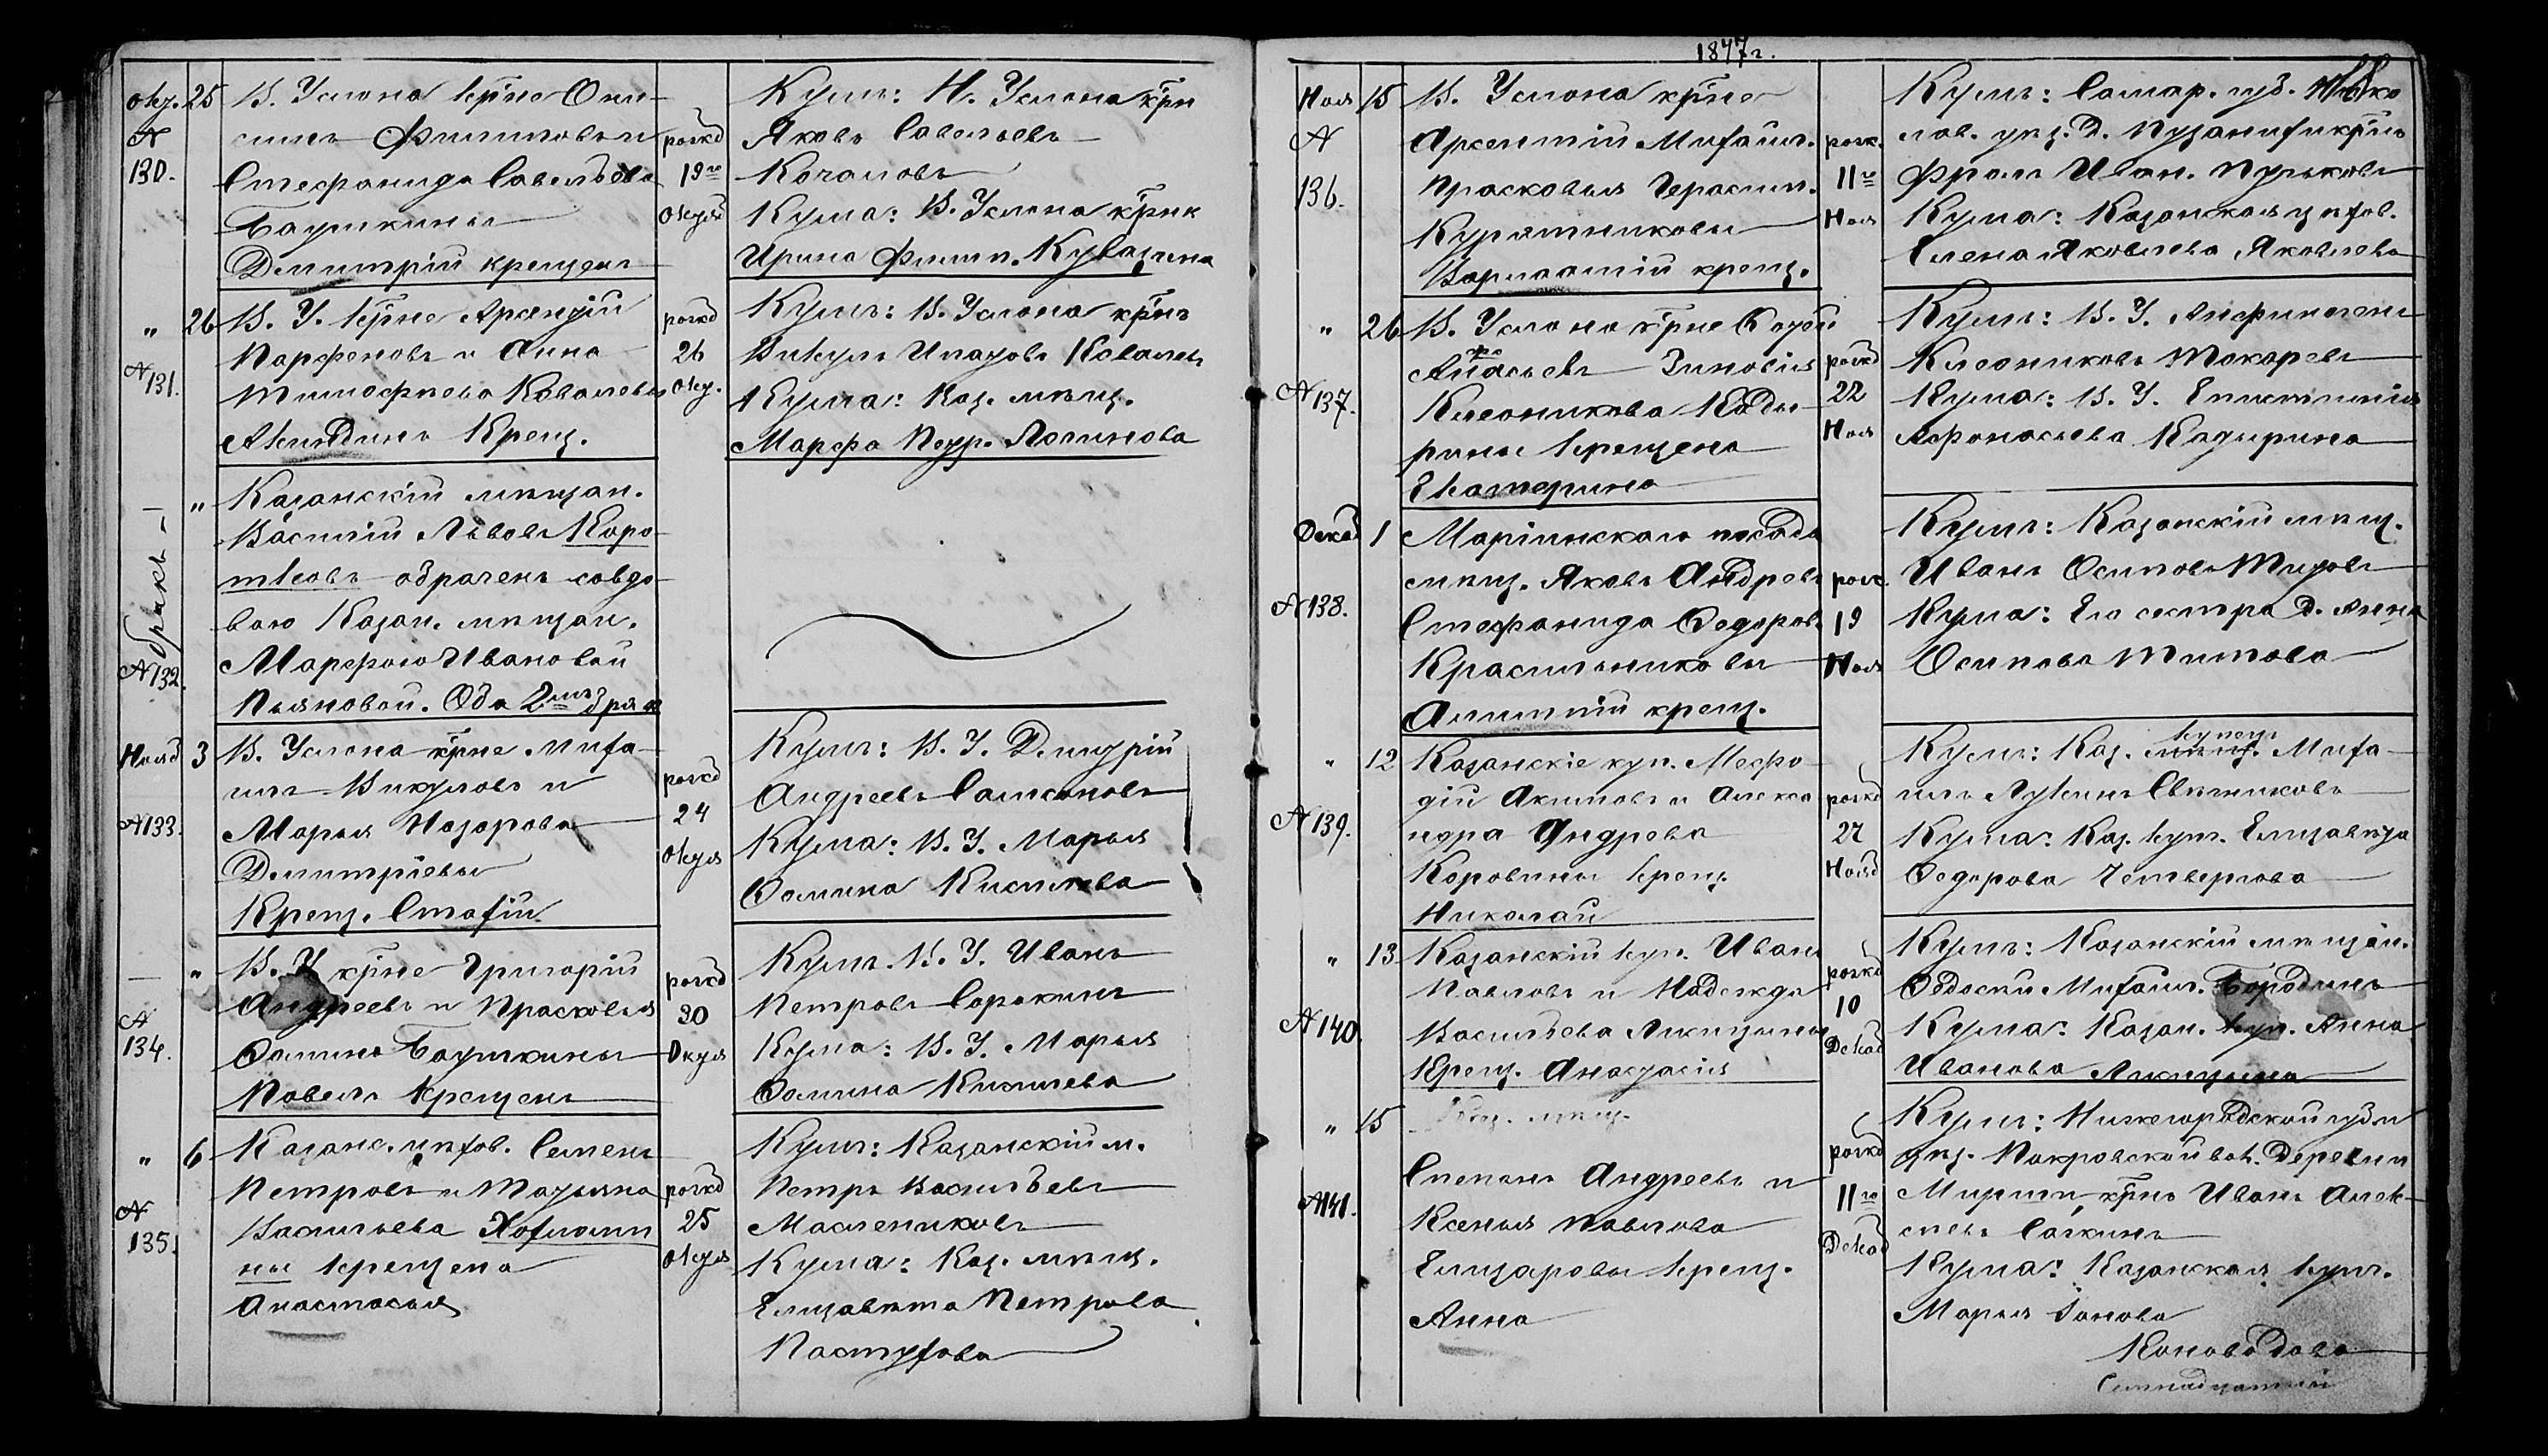 Окт. 25 В. Услона кр̃не Они-
№ 130.
симъ Филиповъ и
Стефанида Савельева
Баушкины
Димитрій крещенъ
рожд 19го Октя
Кумъ: Н. Услона кр̃нъ
Яковъ Савельевъ
Качаловъ
Кума: В. Услона кр̃нк
Ирина Филип. Кувадина
" 26 В. У. кр̃не Арсентій
№ 131.
Парфеновъ и Анна
Тимофеева Ковалевы
Акиндинъ Крещ.
рожд 26 Окт.
Кумъ: В. Услона кр̃нъ
Викулъ Ипатовъ Ковалевъ
Кума: Каз. мѣщ.
Марфа Петр. Логинова
" Казанскій мѣщан.
Бракъ № 132.
Василій Львовъ Коро-
тковъ обраченъ со вдо-
вою Казан. мѣщан.
Марфою Ивановой
Пьяновой. Оба 2мъ брак
Нояб 3 В. Услона кр̃не Миха-
№ 133.
илъ Викуловъ и
Марья Назарова
Димитріевы
Крещ. Стахій
рожд 24 Октя
Кумъ: В. У. Димтрій
Андреевъ Самсоновъ
Кума: В. У. Марья
Фомина Киселева
" В. У кр̃не Григорій
№ 134.
Андреевъ и Прасковья
Фомина Баушкины
Павелъ Крещенъ
рожд 20 Октя
Кумъ. В. У. Иванъ
Петровъ Сорокинъ
Кума: В. У. Марья
Фомина Киселева
" 6 Казанс. цехов. Семенъ
№ 135.
Петровъ и Татьяна
Васильева Хохломи
ны крещена
Анастасья
рожд 25 Октя
Кумъ: Казанскій м.
Петръ Васильевъ
Маслениковъ
Кума: Каз. мѣщ.
Елизавѣта Петрова
Пастухова
1877г.
Ноя 15 В. Услона кр̃не
№ 136.
Арсентій Михаил.
Прасковья Герасим.
Курятниковы
Варлаамій крещ.
рож. 11го Ноя
Кумъ: Самар. губ. Нико
лав. уѣз. Д. Пузанихи кр̃нъ
Фролъ Иван. Пурьковъ
Кума: Казанская цехов.
Елена Яковлева Яковлева
" 26 В. Услона кр̃не
№ 137.
Зиновія
Клеоникова Кады-
рины Крещена
Екатерина
рожд 22 Ноя
Кумъ: В. У. Анфиногенъ
Клеониковъ Токаревъ
Кума: В. У. Епистимія
Афонасьева Кадырина
Декаб 1 Маріинскаго посада
№ 138.
мѣщ. Яковъ Андревъ
Стефанида Федоров.
Красильниковы
Алимпій крещ.
рож. 19 Ноя
Кумъ: Казанскій мѣщ.
Иванъ Осиповъ Титовъ
Кума: Его сестра д. Анна
Осипова Титова
" 12 Казанскіе куп. Мефо-
№ 139.
дій Акимовъ и Алекса
ндра Андрева
Коровины крещ
Николай
рожд 27 Нояб
Кумъ: Каз. купец Миха-
илъ Лукинъ Свѣшниковъ
Кума: Каз. куп. Елизавѣта
Федорова Четвергова
" 13 Казанскій куп. Иванъ
№ 140
Павловъ и Надежда
Васильева Ликицыны
Крещ. Анастасія
рожд 10 Декаб
Кумъ: Казанскій мѣщан.
Федосѣй Михаил. Бородинъ
Кума: Казан. куп. Анна
Иванова Ликицына
" 15 Каз. мѣщ.
№ 141.
Степанъ Андреевъ и
Ксенья Павлова
Елизаровы крещ.
Анна
рожд 11го Декаб
Кумъ: Нижегородской губ и
уѣз. Покровской вол. Деревни
кр̃нъ Иванъ Алек-
сѣевъ Саѣкинъ
Кума: Казанская куп.
Марья Іонова
Коновалова